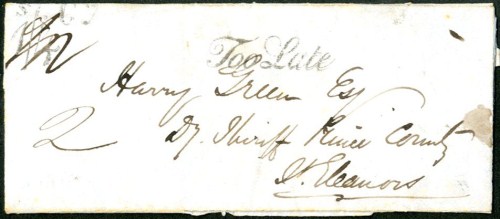 Too Late
Harry Green Esq
2
Dy. Sheriff Prince County
St. Eleanors